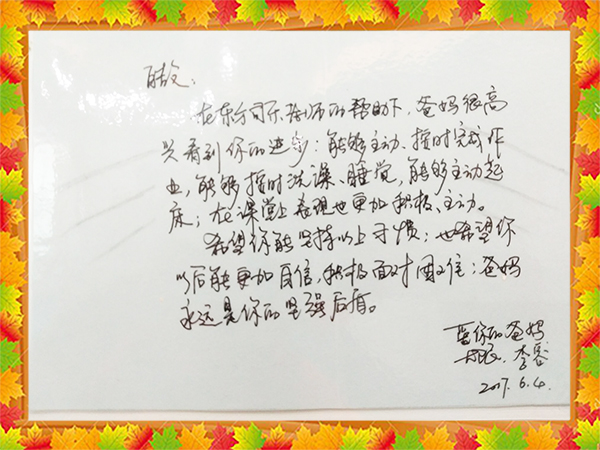 在东方司乐陪师的帮助下，爸妈很高
兴看到你的进步：能够主动、按时完成作
业，能够按时洗澡、睡觉，能够主动起
床；在课堂上表现也更加积极、主动。
希望你能坚持以上习惯；也希望你
以后能更加自信，积极面对困难；爸妈
永远是你的坚强后盾。
爱你的爸妈
李
2017.6.4.